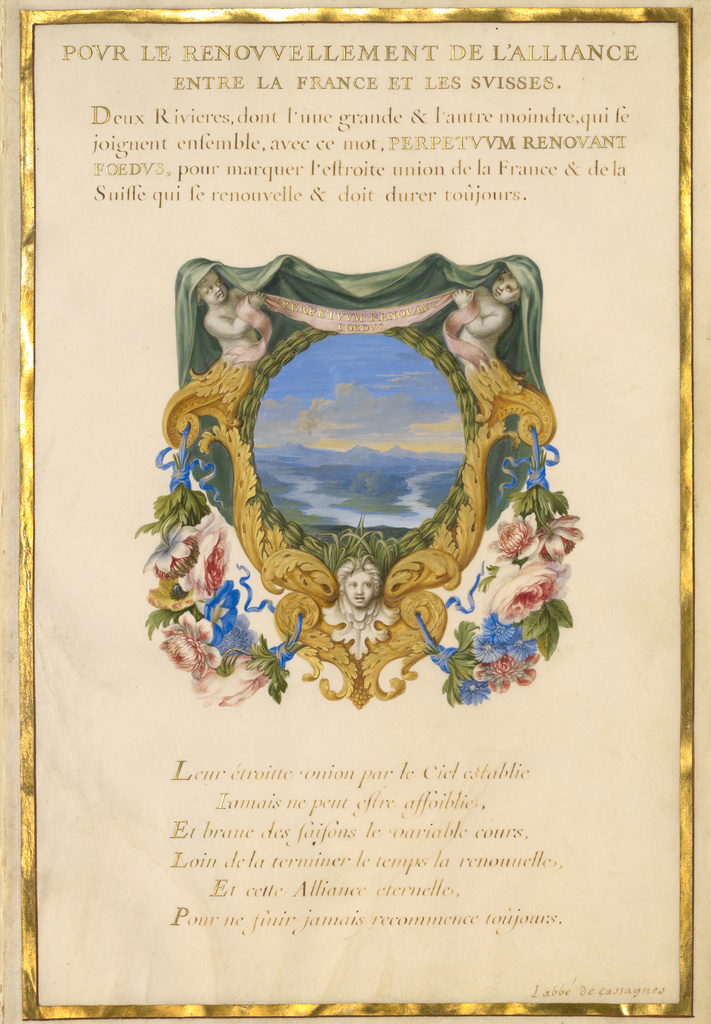 POVR LE RENOVVELLEMENT DE L'ALLIANCE
ENTRE LA FRANCE ET LES SVISSES.
Deux Rivieres, dont l'une grande & l'autre moindre, qui se
joignent ensemble, avec ce mot, PERPETVVM RENOVANT
FOEDVS, pour marquer l'estroite union de la France & de la
Suisse qui se renouvelle & doit durer toûjours.
PERPETVVM RENOVANT
FOEDVS
Leur étroitte union par le Ciel establie
Iamais ne peut estre affoiblie,
Et braue des saisons le variable cours,
Loin de la terminer le temps la renouuelle,
Et cette Alliance eternelle,
Pour ne finir jamais recommence toûjours.
l'abbé de cassagnes